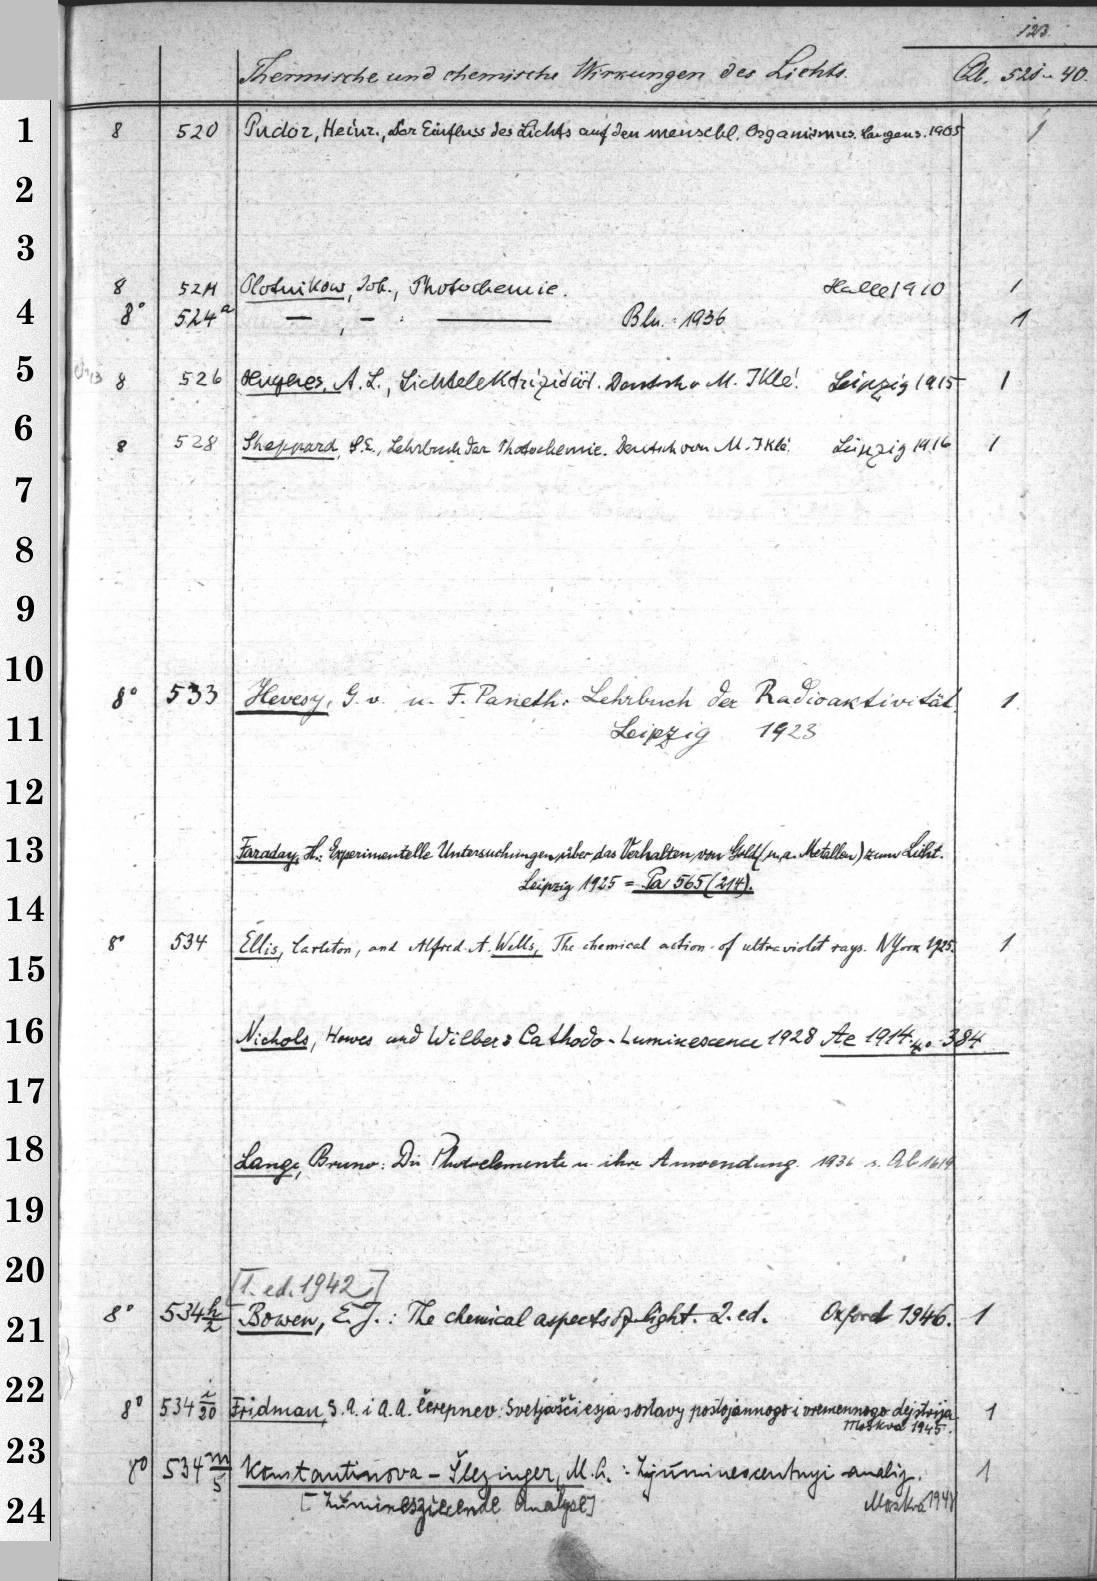 123.
Thermische und chemische Wirkungen des Lichts. Qb. 521-40.
1 8 520 Pudor, Heinr., Der Einfluss des Lichts auf den menschl. Organismus. Langens. 1905 1
2
3
8 524 Plotnikow, Joh., Photochemie. Halle 1910 1
4 8° 524a — , — : — Bln. 1936 1
5 8 526 Hughes, A. L., Lichtelektrizität. Deutsch v. M. Iklé. Leipzig 1915 1
6 8 528 Sheppard, S.E., Lehrbuch der Photochemie. Deutsch von M. Iklé. Leipzig 1916 1
7
8
9
10
8° 533 Hevesy, G. v. u. F. Paneth: Lehrbuch der Radioaktivität. 1
11 Leipzig 1923
12
13 Faraday, M.: Experimentelle Untersuchungen über das Verhalten von Gold (u. a. Metallen) zum Licht.
Leipzig 1925 = Pa 565 (214).
14
8° 534 Ellis, Carleton, and Alfred A. Wells, The chemical action of ultraviolet rays. NYork 1925. 1
15
16 Nichols, Howes und Wilber: Cathodo-Luminescence 1928 Ae 1914 4° 384
17
18 Lange, Bruno: Die Photoelemente u. ihre Anwendung. 1936 s. Ab 1619
19
20
[1. ed. 1942]
8° 534 h/2 Bowen, E. J.: The chemical aspects of light. 2. ed. Oxford 1946. 1
21
22
8° 534 i/20 Fridman, S. A. i A. A. Čerepnev: Svetjaščiesja sostavy postojannogo i vremennogo dejstvija 1
Moskva 1945.
23
8° 534 m/5 Konstantinova-Šlezinger, M. A.: Ljuminescentnyi analiz. 1
24 [Lumineszierende Analyse] Moskva 1948